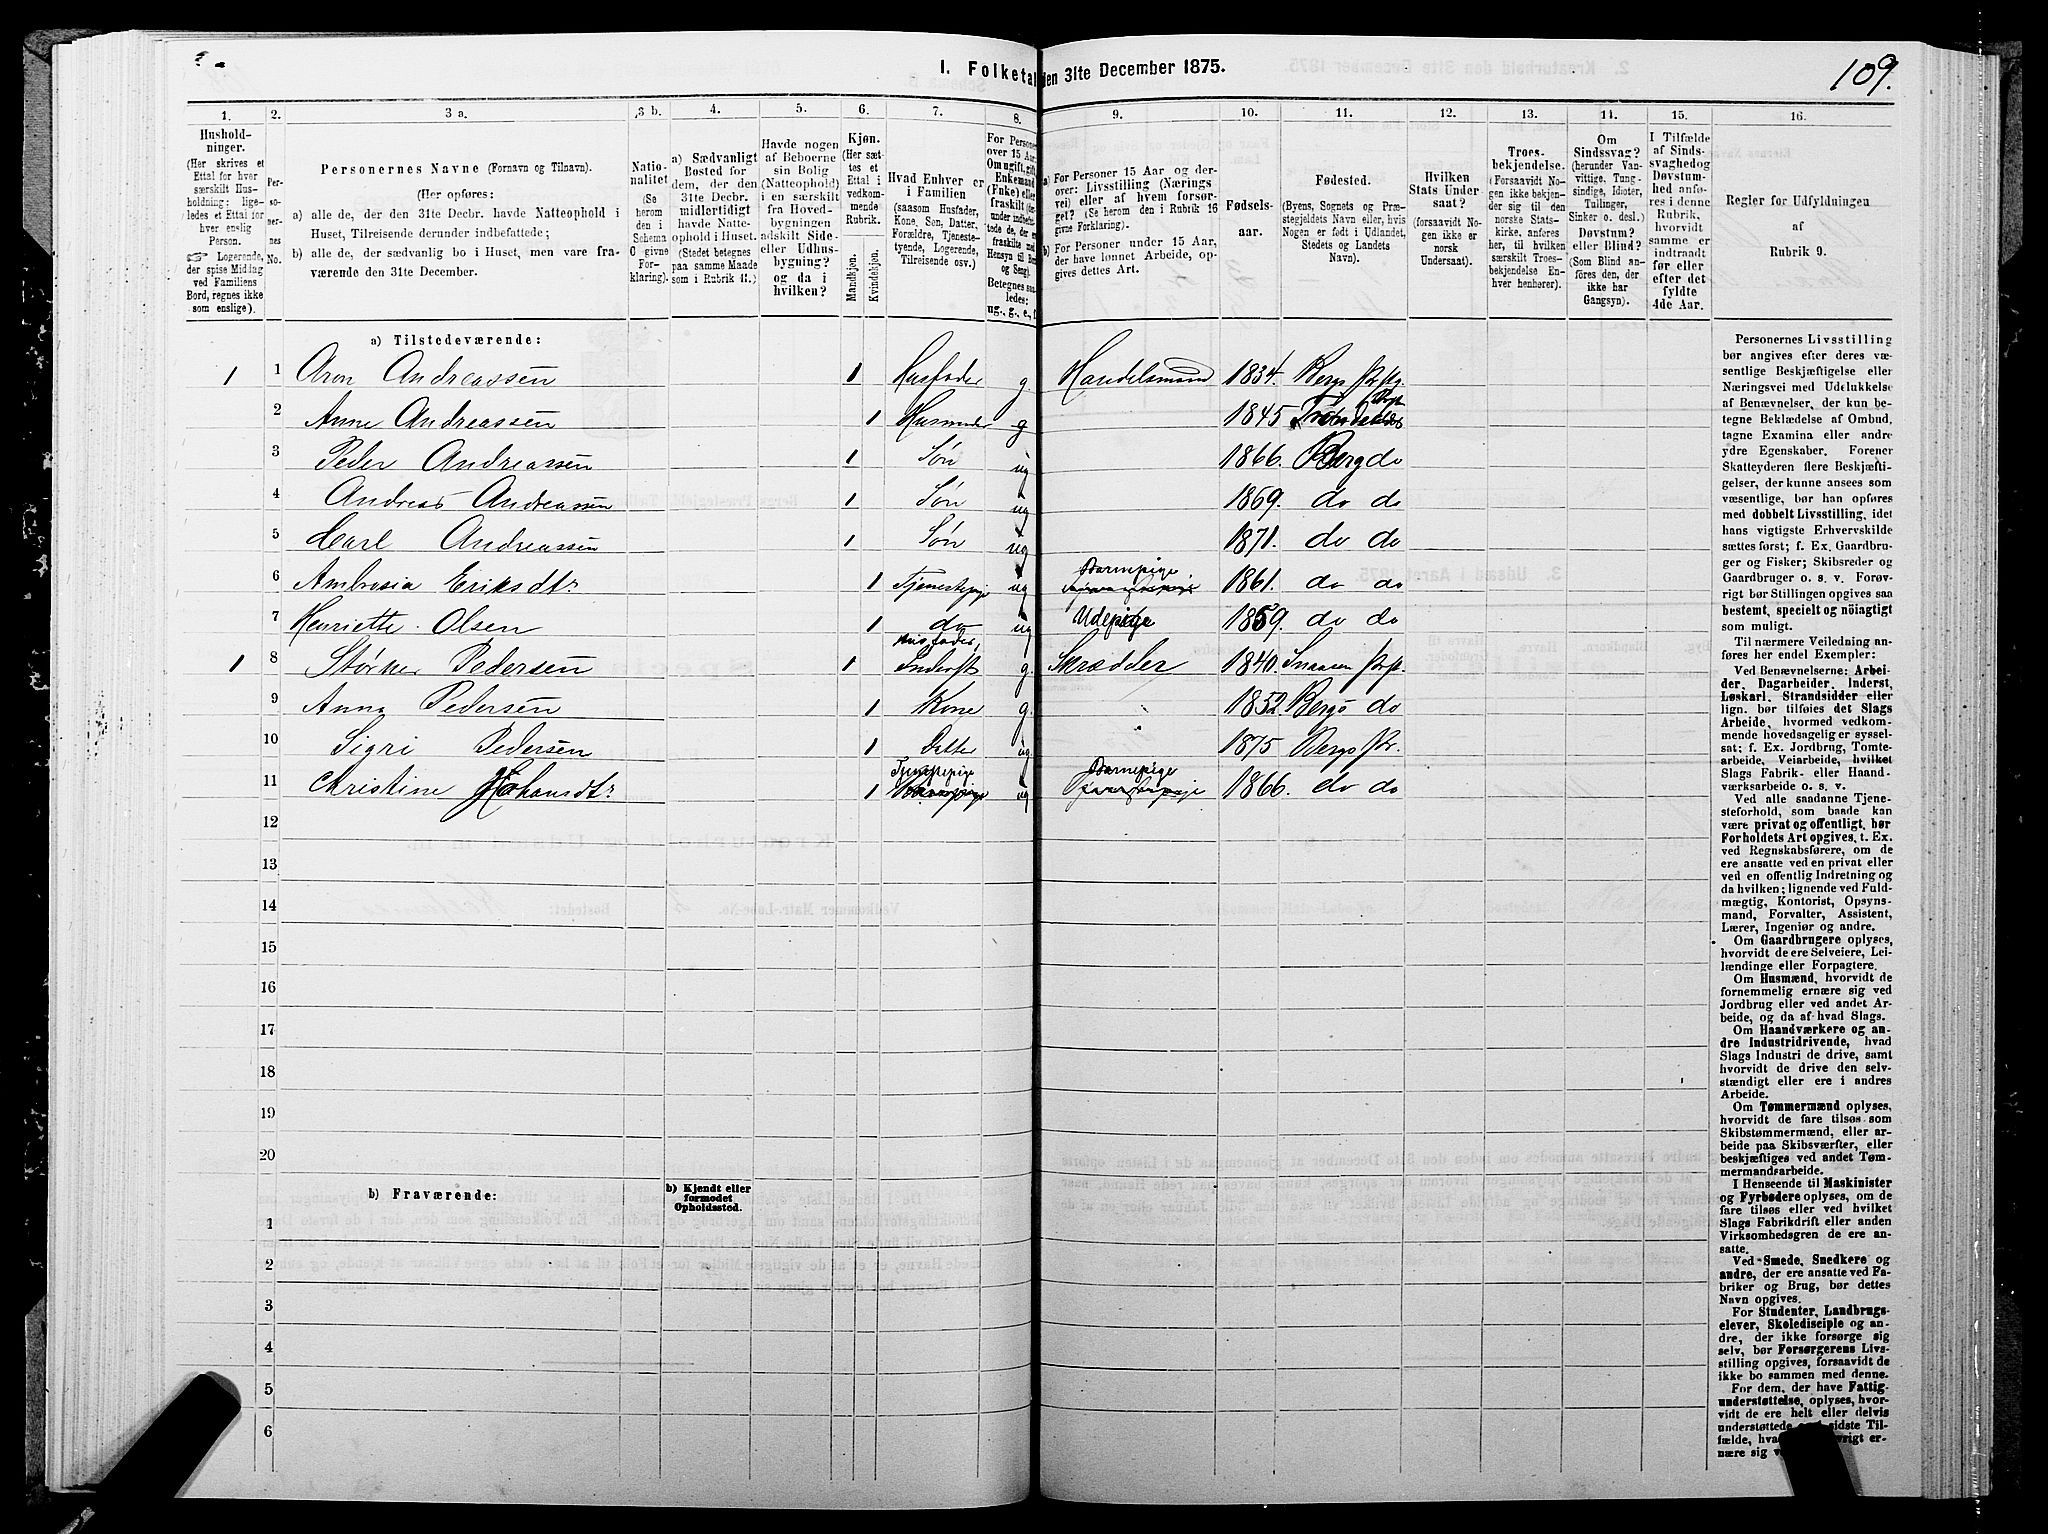 I. Folketal den 31te December 1875.
109.
1.
Hushold-
ninger.
(Her skrives et
Ettal for hver
særskilt Hus-
holdning; lige-
ledes et Ettal for
hver enslig
Person.
☞ Logerende,
der spise Middag
ved Familiens
Bord, regnes ikke
som enslige).
2.
Per-
so-
ner-
nes
No.
3 a.
Personernes Navne (Fornavn og Tilnavn).
(Her opføres:
a) alle de, der den 31te Decbr. havde Natteophold i
Huset, Tilreisende derunder indbefattede;
b) alle de, der sædvanlig bo i Huset, men vare fra-
værende den 31te December.
3 b.
Natio-
nalitet
(Se
herom
den i
Schema
O givne
For-
klaring).
4.
a) Sædvanligt
Bosted for
dem, der den
31te Decbr.
midlertidigt
havde Natte-
ophold i Huset.
(Stedet betegnes
paa samme Maade
som i Rubrik 11.)
5.
Havde nogen
af Beboerne
sin Bolig
(Natteophold)
i en særskilt
fra Hoved-
bygningen
adskilt Side-
eller Udhus-
bygning?
og da i
hvilken?
6.
Kjøn.
(Her sæt-
tes et
Ettal i
vedkom-
mende
Rubrik.
Mandkjøn.
Kvindekjøn.
7.
Hvad Enhver er
i Familien
(saasom Husfader,
Kone, Søn, Datter,
Forældre, Tjeneste-
tyende, Logerende,
Tilreisende osv.)
8.
For Personer
over 15 Aar:
Om ugift, gift,
Enkemand
(Enke) eller
fraskilt
Betegnes saa-
ledes:
ug., g., e., f.
9.
a) For Personer 15 Aar og der-
over: Livsstilling (Nærings
vei) eller af hvem forsør-
get? (Se herom i Rubrik 16
givne Forklaring).
b) For Personer under 15 Aar,
der have lønnet Arbeide, op-
gives dettes Art.
10.
Fødsels-
aar.
11.
Fødested.
(Byens, Sognets og Præ-
stegjeldets Navn eller, hvis
Nogen er født i Udlandet,
Stedets og Landets
Navn).
12.
Hvilken
Stats Under-
saat?
(forsaavidt No-
gen ikke er
norsk
Undersaat).
13.
Troes-
bekjendelse.
(Forsaavidt No-
gen ikke bekjen-
der sig til den
norske Stats-
kirke, anføres
her, til hvilken
særskilt Troes-
bekjendelse En-
hver henhører).
14.
Om
Sindssvag?
(herunder Van-
vittige, Tung-
sindige, Idioter,
Tullinger,
Sinker o. desl.)
Døvstum?
eller Blind?
(Som Blind an-
føres den, der
ikke har
Gangsyn).
15.
I Tilfælde
af Sinds-
svaghed og
Døvstum-
hed anfø-
res i denne
Rubrik,
hvorvidt
samme er
indtraadt
før eller
efter det
fyldte
4de Aar.
16.
Regler for Udfyldningen
af
Rubrik 9.
a) Tilstedeværende:
1 1 Aron Andreassen 1 Husfader g. Handelsmand 1834. Bergs Prstg.
2 Anne Andreassen 1 Husmoder g 1845
3 Peder Andreassen 1 Søn ug 1866. Berg do
4 Andreas Andreassen 1 Søn ug 1869. do do
5 Carl Andreassen 1 Søn ug 1871. do do
6 Ambrosia Eriksdtr 1 Tjenestepige ug Barnepige 1861. do do
7 Henriette Olsen 1 do ug Udepige 1859. do do
1 8 Størker Pedersen 1 Husfader, Inderst g. Skrædder 1840. Snaasen Pr.
9 Anna Pedersen 1 Kone g. 1852. Bergs do
10 Sigri Pedersen 1 Datter ug. 1875 Bergs Pr.
11 Christine Johansdtr 1 Tjenestepige ug Barnepige 1866. do do
12
13
14
15
16
17
18
19
20
b) Fraværende:
b) Kjendt eller
formodet
Opholdssted.
1
2
3
4
5
6
Personernes Livsstilling
bør angives efter deres væ-
sentlige Beskjæftigelse eller
Næringsvei med Udelukkelse
af Benævnelser, der kun be-
tegne Beklædelse af Ombud,
tagne Examina eller andre
ydre Egenskaber. Forener
Skatteyderen flere Beskjæfti-
gelser, der kunne ansees som
væsentlige, bør han opføres
med dobbelt Livsstilling, idet
hans vigtigste Erhvervskilde
sættes først; f. Ex. Gaardbru-
ger og Fisker; Skibsreder og
Gaardbruger o. s. v. Forøv-
rigt bør Stillingen opgives saa
bestemt, specielt og nöiagtigt
som muligt.
Til nærmere Veiledning an-
føres her endel Exempler:
Ved Benævnelserne: Arbei-
der, Dagarbeider, Inderst,
Løskarl, Strandsidder eller
lign. bør tilføies det Slags
Arbeide, hvormed vedkom-
mende hovedsagelig er syssel-
sat; f. Ex. Jordbrug, Tomte-
arbeide, Veiarbeide, hvilket
Slags Fabrik- eller Haand-
værksarbeide o. s. v.
Ved alle saadanne Tjene-
steforhold, som baade kan
være privat og offentligt, bør
Forholdets Art opgives, t. Ex.
ved Regnskabsførere, om de
ere ansatte ved en privat eller
ved en offentlig Indretning og
da hvilken; lignende ved Fuld-
mægtig, Kontorist, Opsyns-
mand, Forvalter, Assistent,
Lærer, Ingeniør og andre.
Om Gaardbrugere oplyses,
hvorvidt de ere Selveiere, Lei-
lændinge eller Forpagtere.
Om Husmænd, hvorvidt de
fornemmelig ernære sig ved
Jordbrug eller ved andet Ar-
beide, og da af hvad Slags.
Om Haandværkere og an-
dre Industridrivende, hvad
Slags Industri de drive, samt
hvorvidt de drive den selv-
stændigt eller ere i andres
Arbeide.
Om Tømmermænd oplyses,
hvorvidt de fare tilsøs som
Skibstømmermænd, eller ar-
beide paa Skibsværfter, eller
beskjæftiges ved andet Tøm-
mermandsarbeide.
I Henseende til Maskinister
og Fyrbødere oplyses, om de
fare tilsøs eller ved hvilket
Slags Fabrikdrift eller anden
Virksomhedsgren de ere an-
satte.
Ved Smede, Snedkere og
andre, der ere ansatte ved Fa-
briker og Brug, bør dettes
Navn opgives.
For Studenter, Landbrugs-
elever, Skoledisciple og an-
dre, der ikke forsørge sig
selv, bør Forsørgerens Livs-
stilling opgives, forsaavidt de
ikke bo sammen med denne.
For dem, der have Fattig-
understøttelse, oplyses, hvor-
vidt de ere helt eller delvis
understøttede